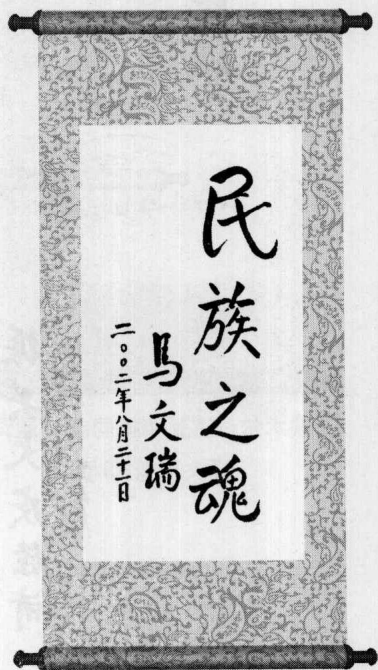 民族之魂
馬文瑞
二〇〇二年八月二十一日